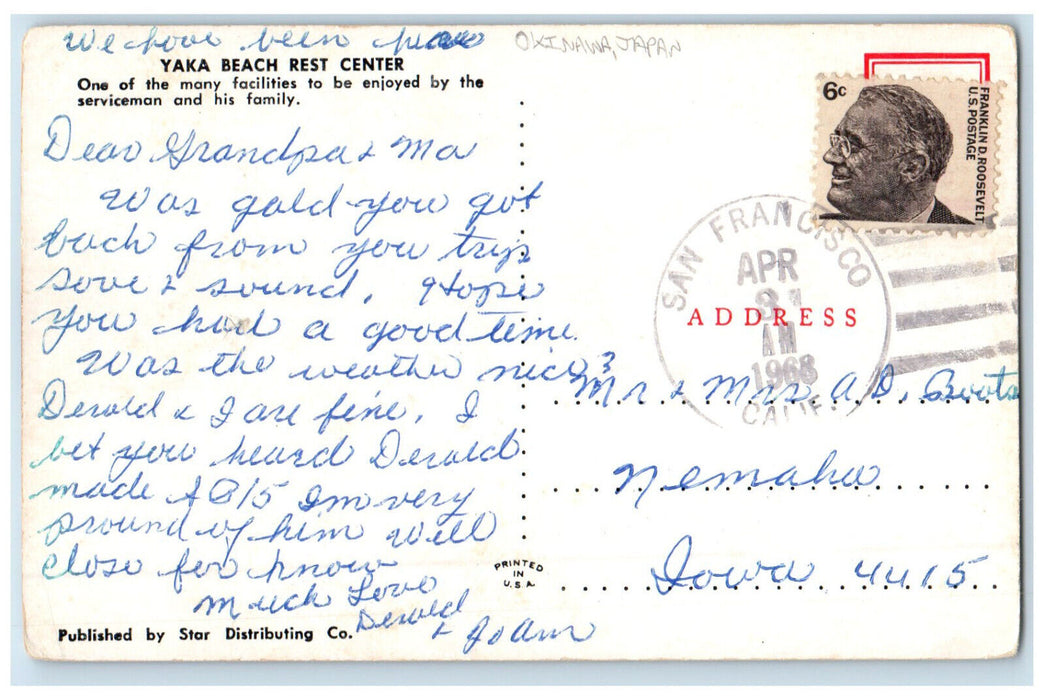 We have been here
OKINAWA, JAPAN
YAKA BEACH REST CENTER
One of the many facilities to be enjoyed by the
serviceman and his family.
Dear Grandpa & Ma
Was gald you got
back from you trip
save & sound. Hope
you had a good time.
Was the weather nice?
Derald & I are fine. I
bet you heard Derald
made AB15 Im very
pround of him Well
close for know
Much Love
Derald
& JoAnn
Published by Star Distributing Co.
PRINTED
IN
U.S.A.
6c
FRANKLIN D. ROOSEVELT
U.S. POSTAGE
SAN FRANCISCO
APR
AM
1968
CALIF.
ADDRESS
Mr & Mrs A.D. Boots
Nemaha
Iowa 4415